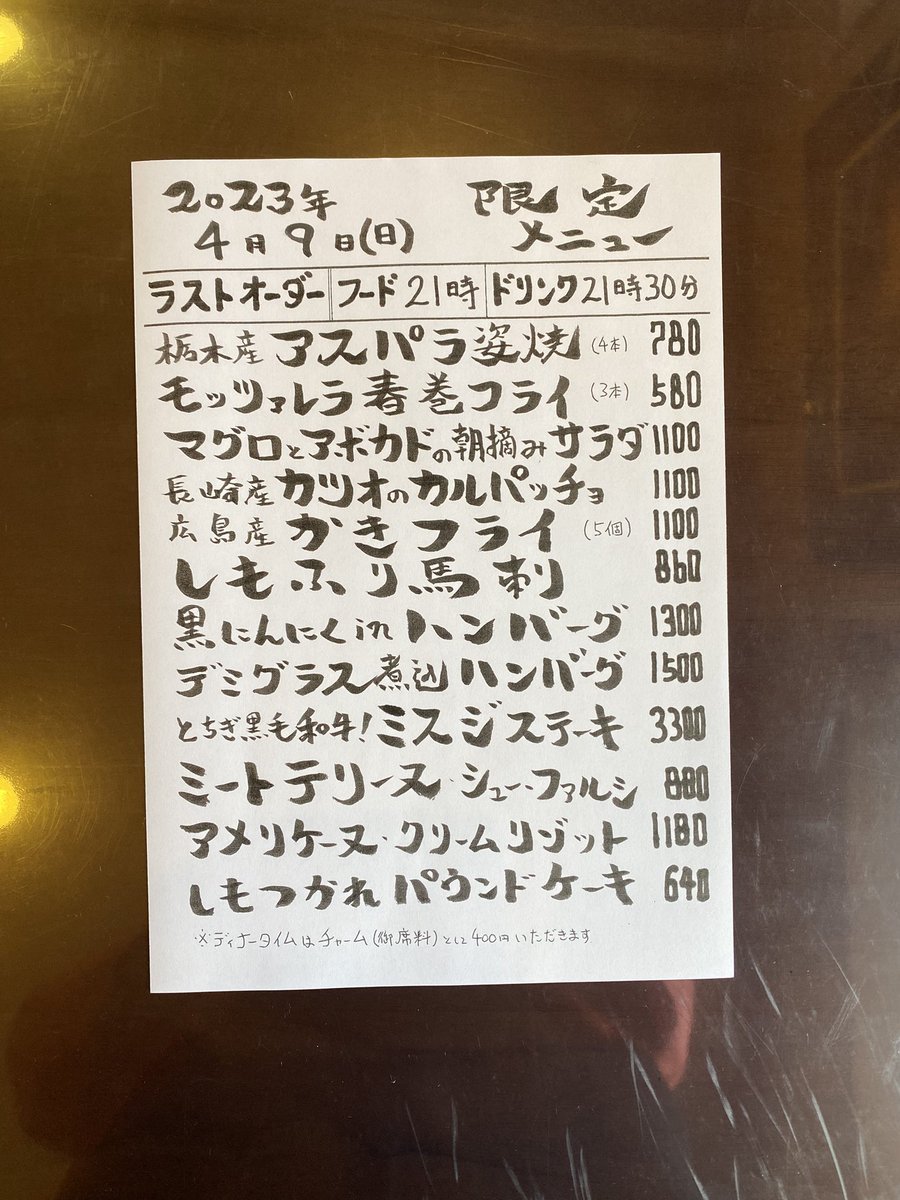 2023年 限定
4月9日(日) メニュー
ラストオーダー フード21時 ドリンク21時30分
栃木産 アスパラ姿焼 (4本) 780
モッツァレラ春巻フライ (3本) 580
マグロとアボカドの朝摘みサラダ 1100
長崎産 カツオのカルパッチョ 1100
広島産 かきフライ (5個) 1100
しもふり馬刺 860
黒にんにくinハンバーグ 1300
デミグラス煮込ハンバーグ 1500
とちぎ黒毛和牛!ミスジステーキ 3300
ミートテリーヌ・シュー・ファルシ 880
アメリケーヌ・クリームリゾット 1180
しもつかれパウンドケーキ 640
※ディナータイムはチャーム(御席料)として400円いただきます